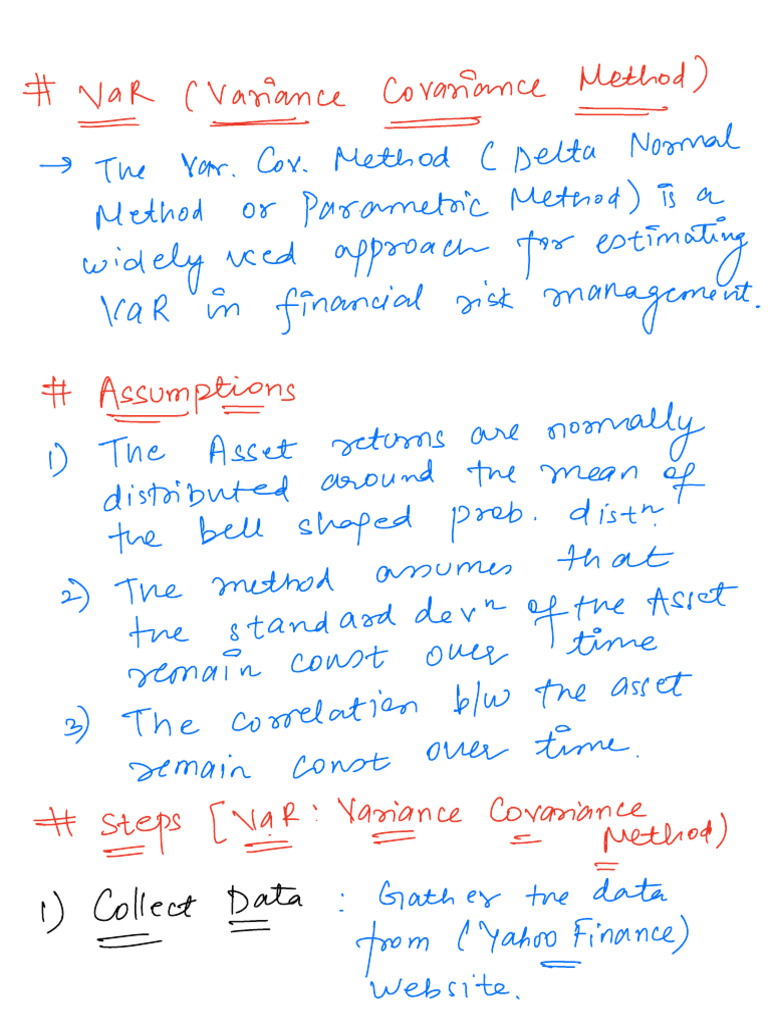 # VaR (Variance Covariance Method)
→ The Var. Cov. Method (Delta Normal
Method or Parametric Method) is a
widely used approach for estimating
VaR in financial risk management.
# Assumptions
1) The Asset returns are normally
distributed around the mean of
the bell shaped prob. distn.
2) The method assumes that
the standard devn of the Asset
remain const over time
3) The correlation b/w the asset
remain const over time.
# Steps [VaR: Variance Covariance
Method)
1) Collect Data : Gather the data
from (Yahoo Finance)
website.